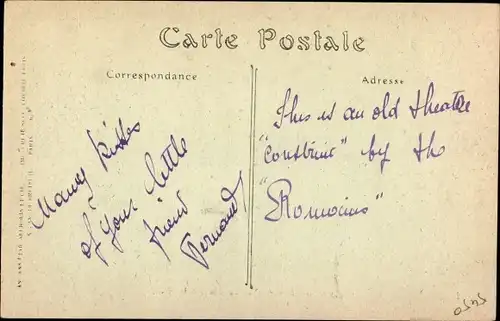 Carte Postale
Correspondance
Adresse
Many Kisses
of your little
friend
Fernand
This is an old theatre
"construie" by the
"Romocins"